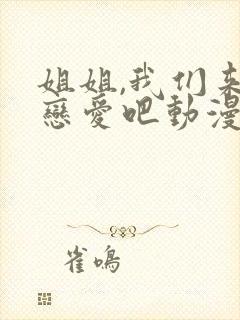 姐姐,我们来
戀愛吧動漫
雀鳴